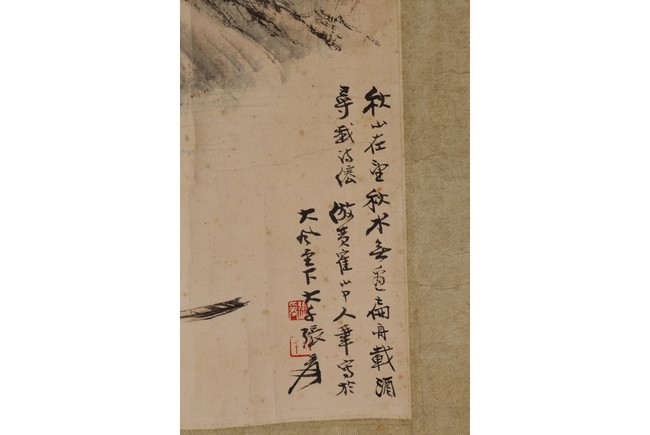 秋山在望秋水無邊扁舟載酒
尋我詩僊 倣黄寉山中人筆寫於
大風堂下大千張爰